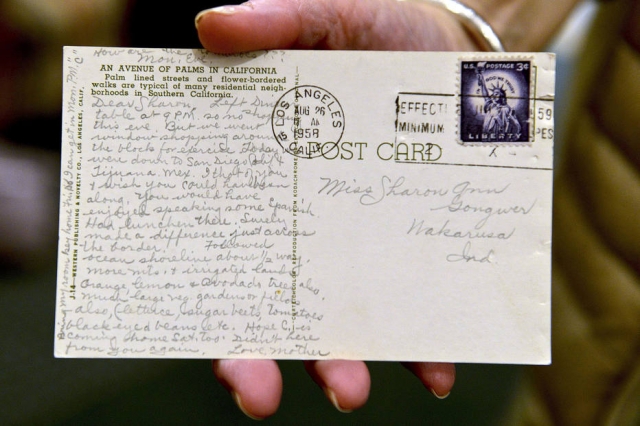 How are the
Mon. Eve.
AN AVENUE OF PALMS IN CALIFORNIA
Palm lined streets and flower-bordered
walks are typical of many residential neigh-
borhoods in Southern California.
Dear Sharon, Left Dinner
table at 9 P.M. so no shopping
this eve. But we went
window shopping around
the blocks for exercise. Today we
were down to San Diego Calif &
Tijuana Mex. I thot of you
& wish you could have been
along. You would have
enjoyed speaking some Spanish
Had luncheon there. Surely
made a difference just across
the border. Followed
ocean shoreline about 1/2 way,
more mts. & irrigated land of
Orange lemon & Avocado trees also,
much large veg. gardens or fields
also, (lettuce, sugar beets, tomatoes
black eyed beans, etc. Hope C. is
coming home Sat. too. Didn't hear
from you again. Love, Mother
Bring my room key home
I can get in Mon. P.M.
J.14—WESTERN PUBLISHING & NOVELTY CO., LOS ANGELES, CALIF.
REPRODUCTION FROM KODACHROME
POST CARD
LOS ANGELES
AUG 26
AM
1958
CALIF.
EFFECTI
MINIMUM
59
U.S. POSTAGE 3¢
IN GOD WE TRUST
LIBERTY
Miss Sharon Ann
Gongwer
Wakarusa
Ind